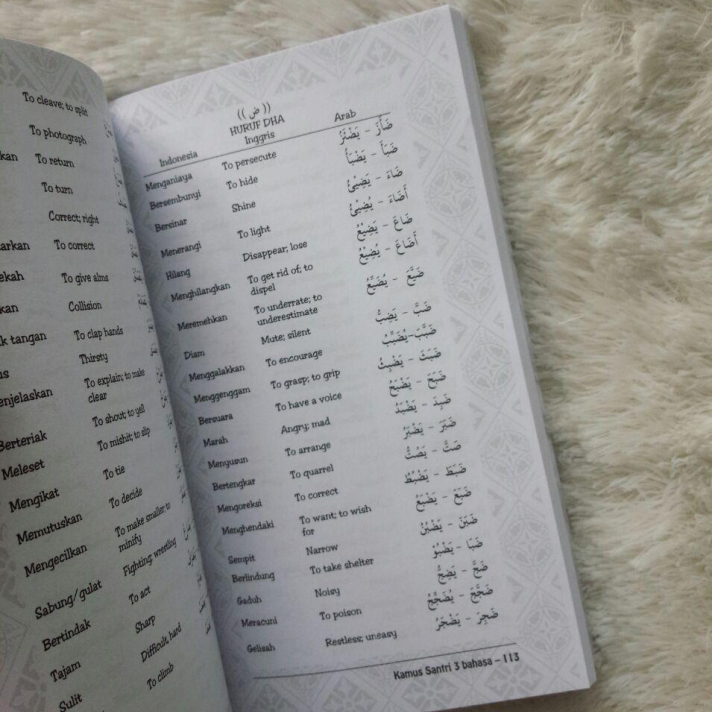 To cleave; to split
To photograph
kan To return
To turn
Correct; right
arkan To correct
ekah To give alms
kan Collision
k tangan To clap hands
us Thirsty
enjelaskan To explain; to make
clear
Berteriak To shout; to yell
Meleset To mishit; to slip
Mengikat To tie
Memutuskan To decide
Mengecilkan To make smaller; to
minify
Sabung/gulat Fighting; wrestling
Bertindak To act
Tajam Sharp
Sulit Difficult, hard
To climb
(( ض ))
HURUF DHA
Indonesia Inggris Arab
Menganiaya To persecute ضَأَزَ – يَضْئَزُ
Bersembunyi To hide ضَبَأَ – يَضْبَأُ
Bersinar Shine ضَاءَ – يَضِيْئُ
Menerangi To light أَضَاءَ – يُضِيْئُ
Hilang Disappear, lose ضَاعَ – يَضِيْعُ
Menghilangkan To get rid of; to أَضَاعَ – يُضِيْعُ
dispel
Meremehkan To underrate; to ضَيَّعَ – يُضَيِّعُ
underestimate
Diam Mute; silent ضَبَّ – يَضِبُّ
Menggalakkan To encourage ضَبَّبَ–يُضَبِّبُ
Menggenggam To grasp; to grip ضَبَثَ – يَضْبِثُ
Bersuara To have a voice ضَبَحَ – يَضْبَحُ
Marah Angry; mad ضَبِدَ – يَضْبَدُ
Menyusun To arrange ضَبَرَ – يَضْبُرُ
Bertengkar To quarrel
Mengoreksi To correct ضَبَطَ – يَضْبُطُ
Menghendaki To want; to wish ضَبَعَ – يَضْبَعُ
for
Sempit Narrow ضَبَنَ – يَضْبُنُ
Berlindung To take shelter ضَبَا – يَضْبُوْ
Gaduh Noisy ضَجَّ – يَضِجُّ
Meracuni To poison ضَجَّجَ – يُضَجِّجُ
Gelisah Restless; uneasy ضَجِرَ – يَضْجَرُ
Kamus Santri 3 bahasa – 113